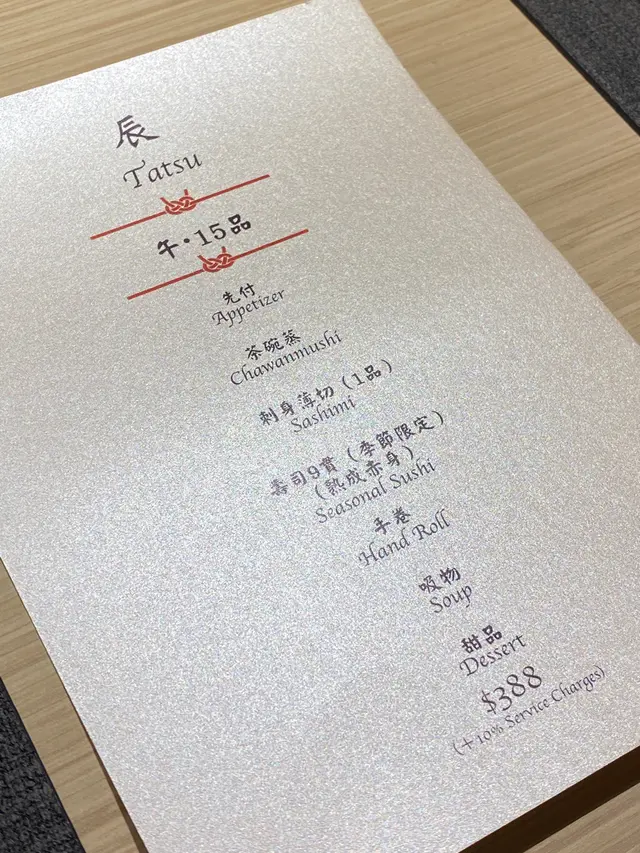 辰
Tatsu
午・15品
先付
Appetizer
茶碗蒸
Chawanmushi
刺身薄切（1品）
Sashimi
壽司9貫（季節限定）
（熟成赤身）
Seasonal Sushi
手卷
Hand Roll
吸物
Soup
甜品
Dessert
$388
(+10% Service Charges)